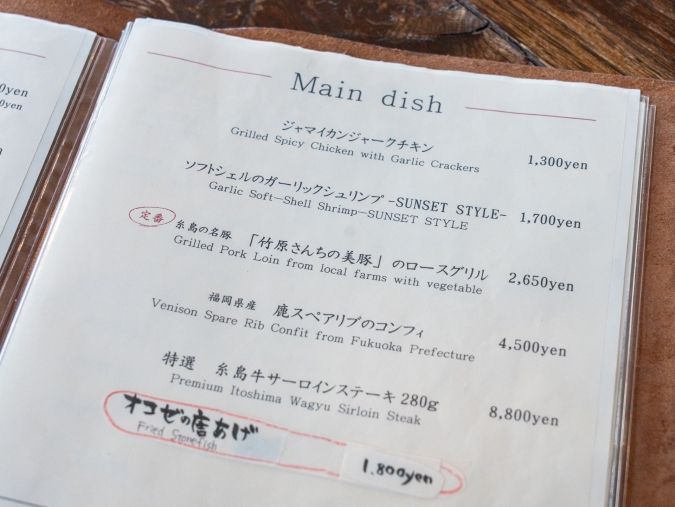 0yen
0yen
n
Main dish
ジャマイカンジャークチキン
Grilled Spicy Chicken with Garlic Crackers
1,300yen
ソフトシェルのガーリックシュリンプ -SUNSET STYLE-
Garlic Soft-Shell Shrimp-SUNSET STYLE
1,700yen
定番
糸島の名豚 「竹原さんちの美豚」 のロースグリル
Grilled Pork Loin from local farms with vegetable
2,650yen
福岡県産 鹿スペアリブのコンフィ
Venison Spare Rib Confit from Fukuoka Prefecture
4,500yen
特選 糸島牛サーロインステーキ 280g
Premium Itoshima Wagyu Sirloin Steak
8,800yen
オコゼの唐あげ
Fried Stonefish
1.800yen